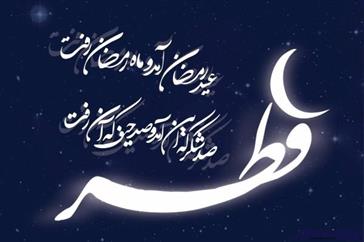 عید رمضان آمد و ماه رمضان رفت
صد شکر که این آمد و صد حیف که آن رفت
فطر